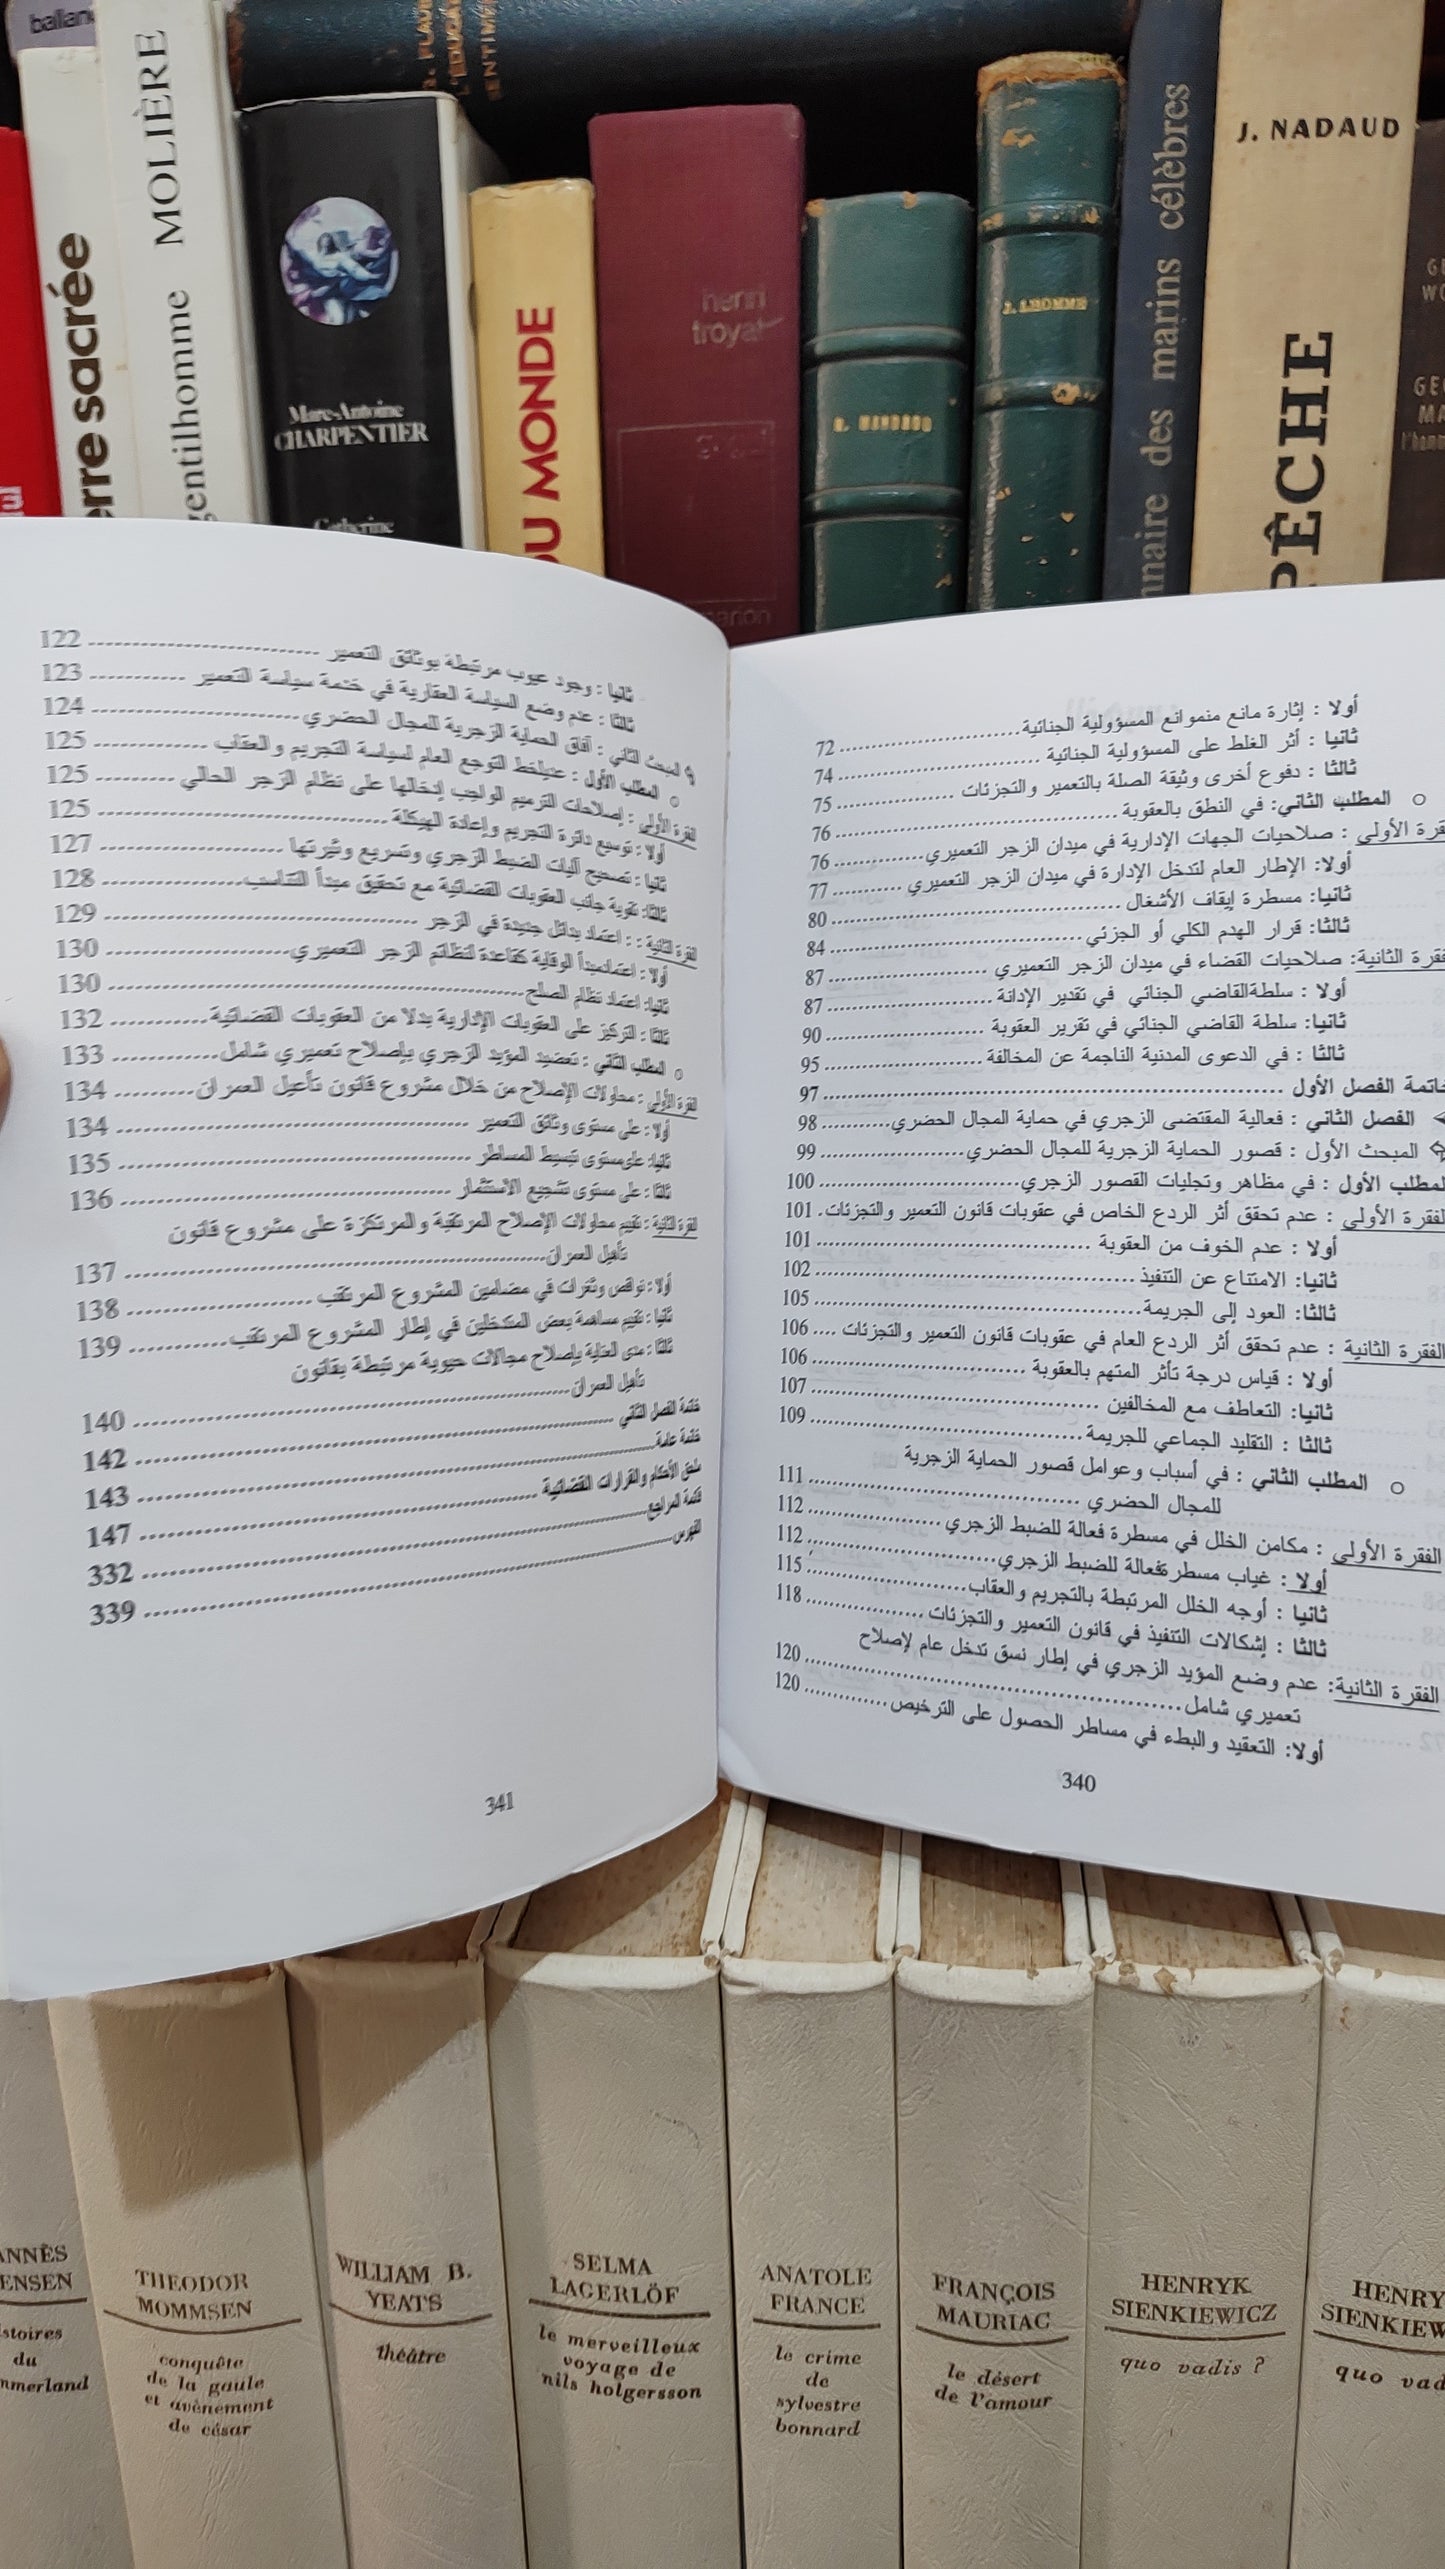 ballan
erre sacrée
MOLIÈRE
gentilhomme
Marc-Antoine
CHARPENTIER
Catherine
DU MONDE
L'EDUCA
ENTIM
henri
troyat
J. LHOMME
nnaire des marins célèbres
J. NADAUD
PÊCHE
أولا : إثارة مانع منموانع المسؤولية الجنائية 72
ثانيا : أثر الغلط على المسؤولية الجنائية 74
ثالثا : دفوع أخرى وثيقة الصلة بالتعمير والتجزئات 75
○ المطلب الثاني: في النطق بالعقوبة 76
فقرة الأولى : صلاحيات الجهات الإدارية في ميدان الزجر التعميري 76
أولا: الإطار العام لتدخل الإدارة في ميدان الزجر التعميري 77
ثانيا: مسطرة إيقاف الأشغال 80
ثالثا: قرار الهدم الكلي أو الجزئي 84
فقرة الثانية: صلاحيات القضاء في ميدان الزجر التعميري 87
أولا : سلطةالقاضي الجنائي في تقدير الإدانة 87
ثانيا: سلطة القاضي الجنائي في تقرير العقوبة 90
ثالثا : في الدعوى المدنية الناجمة عن المخالفة 95
خاتمة الفصل الأول 97
الفصل الثاني : فعالية المقتضى الزجري في حماية المجال الحضري 98
المبحث الأول : قصور الحماية الزجرية للمجال الحضري 99
لمطلب الأول : في مظاهر وتجليات القصور الزجري 100
لفقرة الأولى : عدم تحقق أثر الردع الخاص في عقوبات قانون التعمير والتجزئات. 101
أولا : عدم الخوف من العقوبة 101
ثانيا: الامتناع عن التنفيذ 102
ثالثا: العود إلى الجريمة 105
الفقرة الثانية : عدم تحقق أثر الردع العام في عقوبات قانون التعمير والتجزئات 106
أولا : قياس درجة تأثر المتهم بالعقوبة 106
ثانيا: التعاطف مع المخالفين 107
ثالثا : التقليد الجماعي للجريمة 109
○ المطلب الثاني : في أسباب وعوامل قصور الحماية الزجرية
للمجال الحضري 111
الفقرة الأولى : مكامن الخلل في مسطرة فعالة للضبط الزجري 112
أولا : غياب مسطرةفعالة للضبط الزجري 112
ثانيا : أوجه الخلل المرتبطة بالتجريم والعقاب 115
ثالثا : إشكالات التنفيذ في قانون التعمير والتجزئات 118
الفقرة الثانية: عدم وضع المؤيد الزجري في إطار نسق تدخل عام لإصلاح
تعميري شامل 120
أولا: التعقيد والبطء في مساطر الحصول على الترخيص 120
340
ثانيا : وجود عيوب مرتبطة بوثائق التعمير 122
ثالثا : عدم وضع السياسة العقارية في خدمة سياسة التعمير 123
المبحث الثاني : آفاق الحماية الزجرية للمجال الحضري 124
○ المطلب الأول : عنيلخط التوجع العام لسياسة التجريم والعقاب 125
الفقرة الأولى : إصلاحات الترميم الواجب إدخالها على نظام الزجر الحالي 125
أولا : توسيع دائرة التجريم وإعادة الهيكلة 125
ثانيا : تصحيح آليات الضبط الزجري وتسريع وثيرتها 127
ثالثا: تقوية جانب العقوبات القضائية مع تحقيق مبدأ التناسب 128
الفقرة الثانية : : اعتماد بدائل جديدة في الزجر 129
أولا : اعتمادمبدأ الوقاية كقاعدة لنظائم الزجر التعميري 130
ثانيا: اعتماد نظام الصلح 130
ثالثا : التركيز على العقوبات الإدارية بدلا من العقوبات القضائية 132
○ المطلب الثاني : تعضيد المؤيد الزجري بإصلاح تعميري شامل 133
الفقرة الأولى : محاولات الإصلاح من خلال مشروع قانون تأهيل العمران 134
أولا : على مستوى وثائق التعمير 134
ثانيا: علىمستوى تبسيط المساطر 135
ثالثا : على مستوى تشجيع الاستثمار 136
الفقرة الثانية : تقييم محاولات الإصلاح المرتقبة والمرتكزة على مشروع قانون
تأهيل العمران 137
أولا : نواقص وثغرات في مضامين المشروع المرتقب 138
ثانيا : تقييم مساهمة بعض المتدخلين في إطار المشروع المرتقب 139
ثالثا : مدى العناية بإصلاح مجالات حيوية مرتبطة بقانون
تأهيل العمران 140
خاتمة الفصل الثاني 142
خاتمة عامة 143
ملحق الأحكام والقرارات القضائية 147
قائمة المراجع 332
الفهرس 339
341
ANNÈS
ENSEN
stoires
du
mmerland
THEODOR
MOMMSEN
conquête
de la gaule
et avènement
de césar
WILLIAM B.
YEATS
théâtre
SELMA
LAGERLÖF
le merveilleux
voyage de
nils holgersson
ANATOLE
FRANCE
le crime
de
sylvestre
bonnard
FRANÇOIS
MAURIAC
le désert
de l'amour
HENRYK
SIENKIEWICZ
quo vadis ?
HENRY
SIENKIEW
quo vad